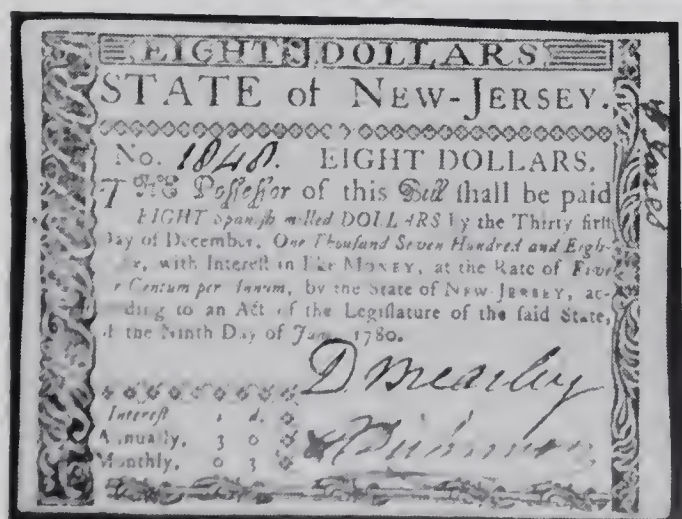 EIGHT DOLLARS
STATE of NEW-JERSEY.
No. 1848. EIGHT DOLLARS.
THE Poſſeſſor of this Bill ſhall be paid
EIGHT Spaniſh milled DOLLARS by the Thirty firſt
Day of December, One Thouſand Seven Hundred and Eigh-
with Intereſt in like MONEY, at the Rate of Five
Centum per Annum, by the State of NEW-JERSEY, ac-
ding to an Act of the Legiſlature of the ſaid State,
the Ninth Day of June, 1780.
D Brearley
Intereſt s. d.
Annually, 3 0
Monthly, 0 3